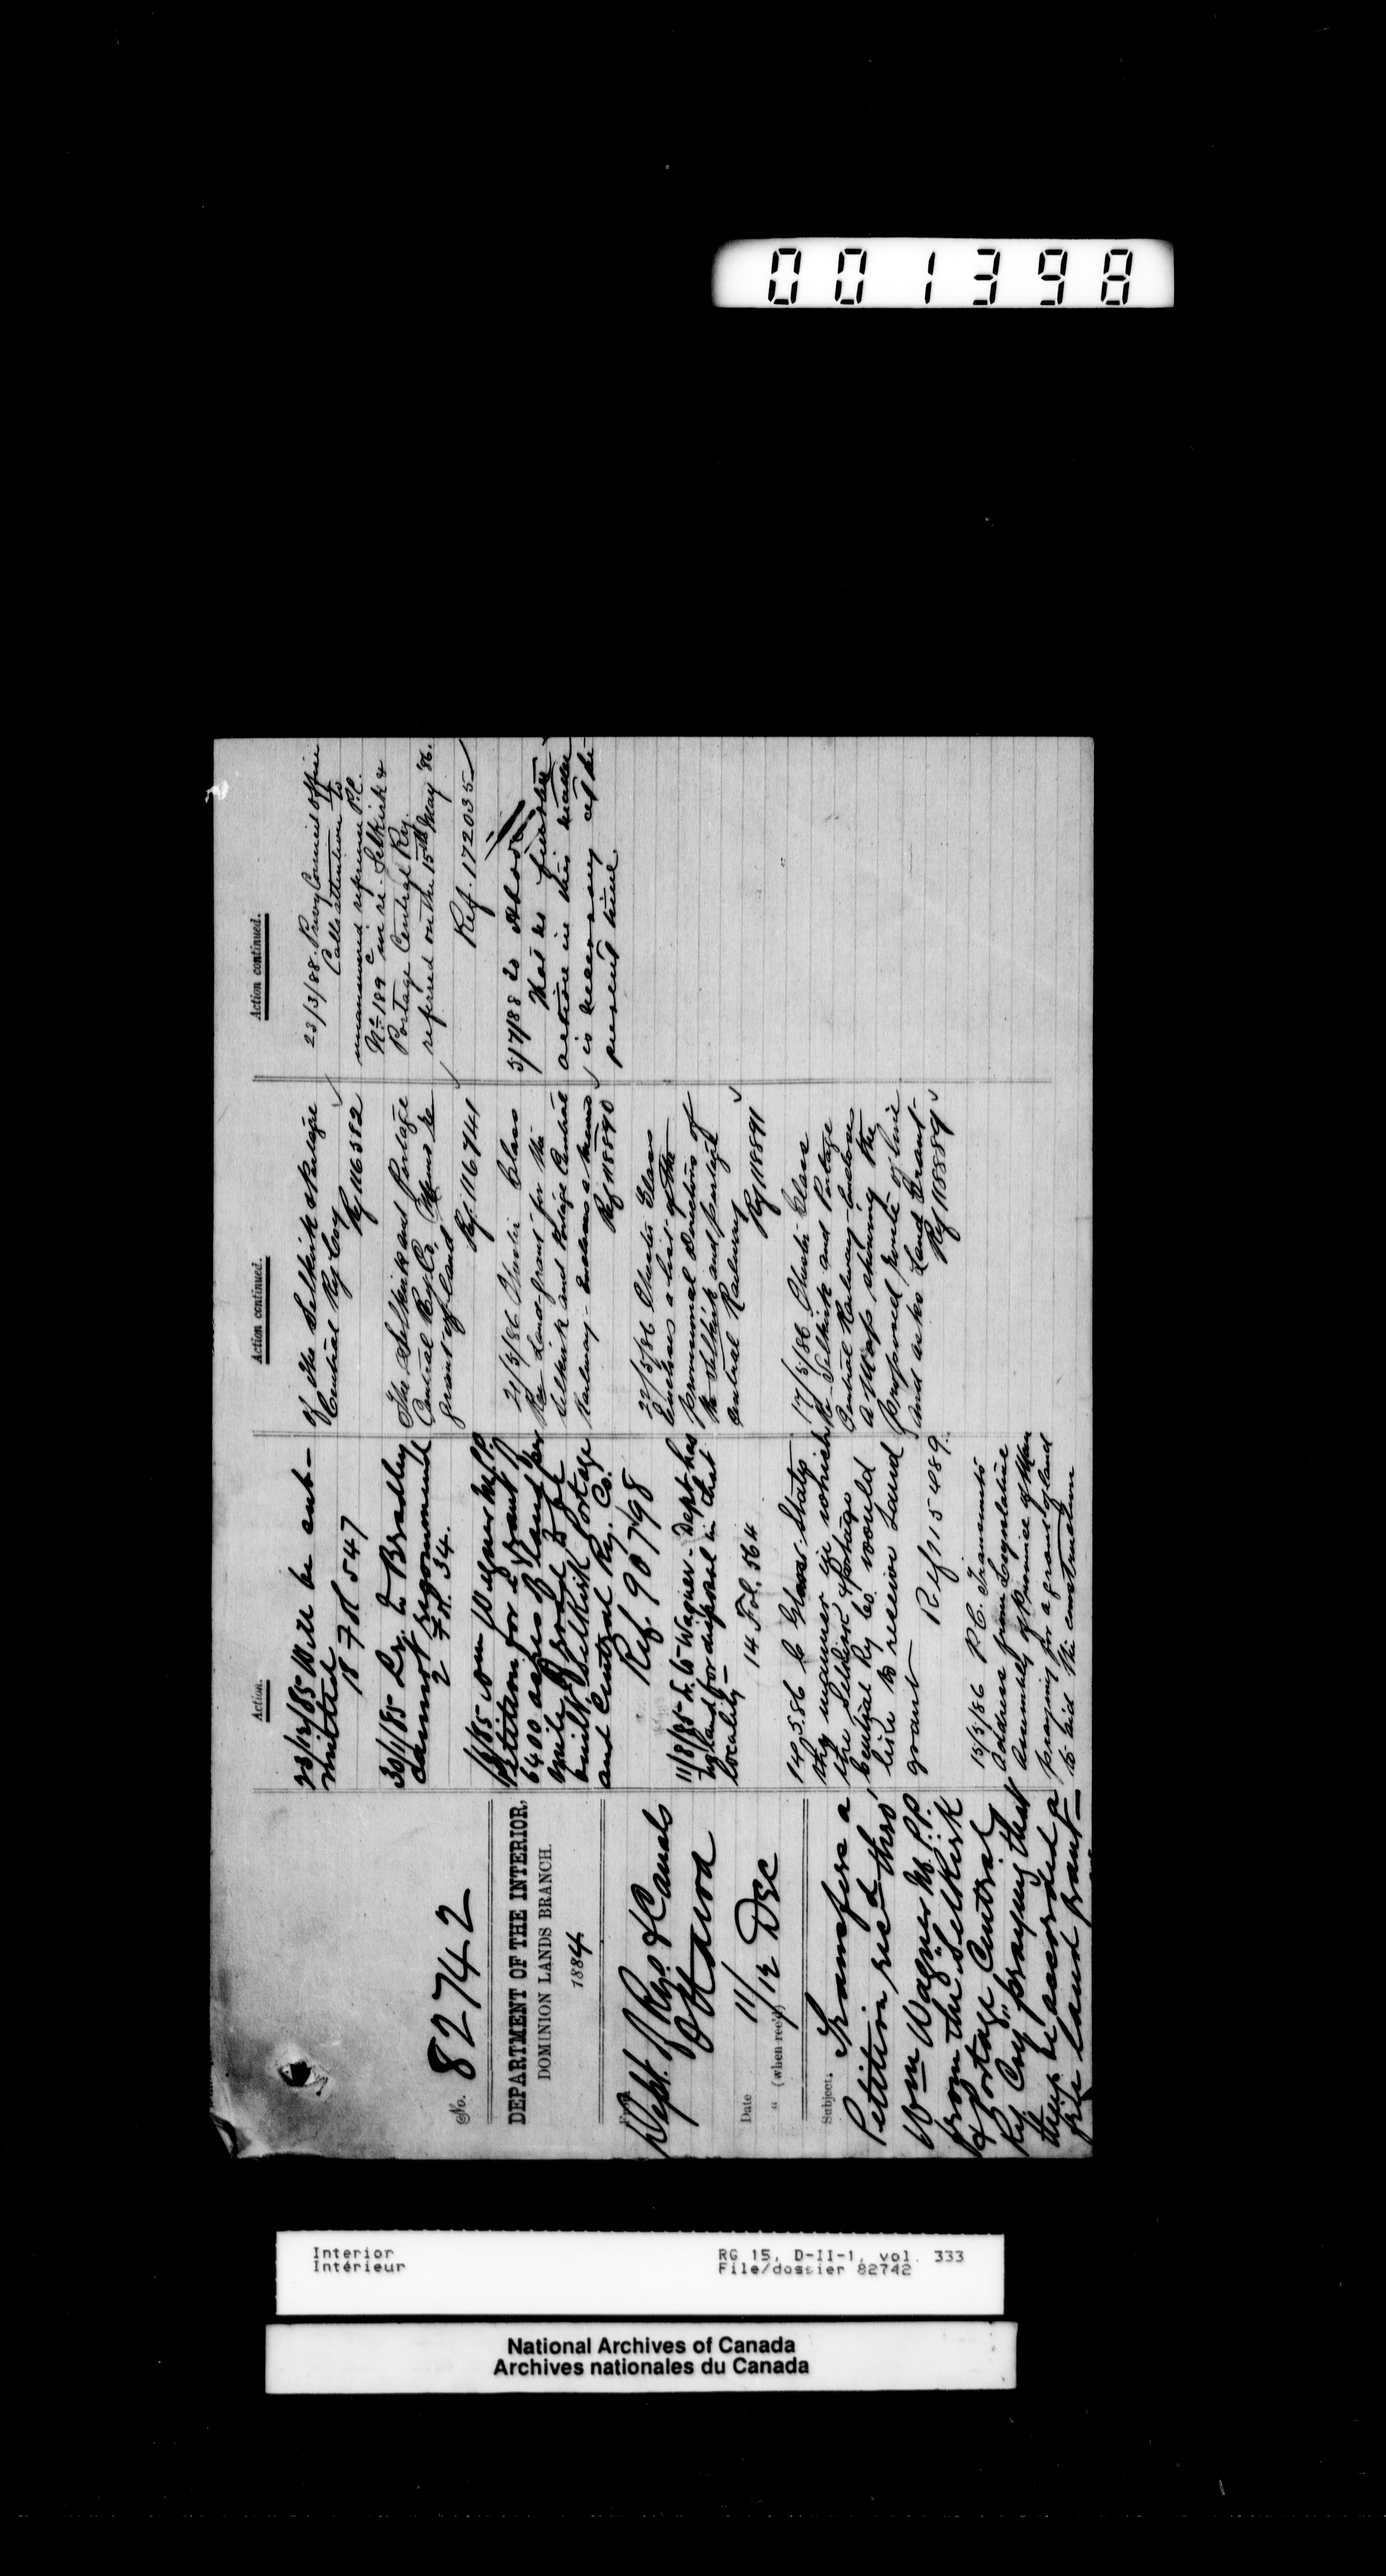 001398
No. 82742
DEPARTMENT OF THE INTERIOR,
DOMINION LANDS BRANCH.
1884
From
Dept. of Rys. & Canals
Ottawa
Date 11/
" (when rec'd) /12 Dec
Subject.
Transfers a
Petition rec'd thro'
Wm Wagner M.P.P.
from the "Selkirk
& Portage Central
Ry. Coy" praying that
they be accorded a
free land grant—
Action.
23/12/85 Will be sub-
mitted
18 7 R 547
30/1/85 Lr. to Bradley
cannot recommend
2 7 R. 34.
/6/85 Wm Wagner M.P.P.
Petition for a grant of
6400 acres of land per
mile of road to be
built Selkirk Portage
and Central Ry. Co.
Ref. 90798
11/8/85 L. to Wagner - Dept. has
no land for disposal in that
locality—
14 Fol. 564
14.5.86 C Glass States
the manner in which
the Selkirk & Portage
Central Ry Co. would
like to receive land
grant
Ref 115489.
15/5/86 P.C. Transmits
address from Legislative
Assembly of Province of Man
praying for a grant of land
to aid the construction
Action continued.
of the Selkirk & Portage
Central Ry Coy
Ref 116382
The Selkirk and Portage
Central Ry. Co, Memo re
grant of land
Ref. 116741
21/5/86 Chester Glass
Re Land grant for the
Selkirk and Portage Central
Railway - Encloses a memo
Ref 118890
22/5/86 Chester Glass
Encloses a list of the
provisional Directors of
the Selkirk and Portage
Central Railway
Ref 118891
17/5/86 Chester Glass
Re Selkirk and Portage
Central Railway - Encloses
a Map showing the
proposed route of line
and asks Land Grant -
Ref 118889
Action continued.
23/3/88. Privy Council Office
Calls attention to
unanswered reference P.C.
No 189 c in re. Selkirk &
Portage Central Ry.
referred on the 15th May '86.
Ref. 172035
5/7/88 to Above
that no further
action in this matter
is necessary at the
present time.
Interior
Intérieur
RG 15, D-II-1, vol. 333
File/dossier 82742
National Archives of Canada
Archives nationales du Canada